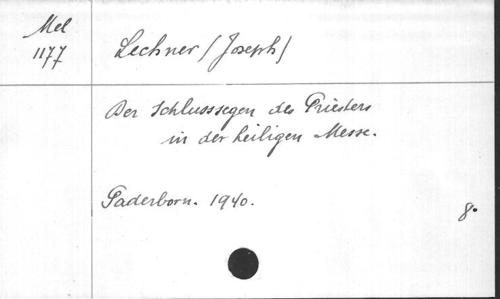 Mel
1177
Lechner (Joseph)
Der Schlusssegen des Priesters
in der heiligen Messe.
Paderborn. 1940.
8.